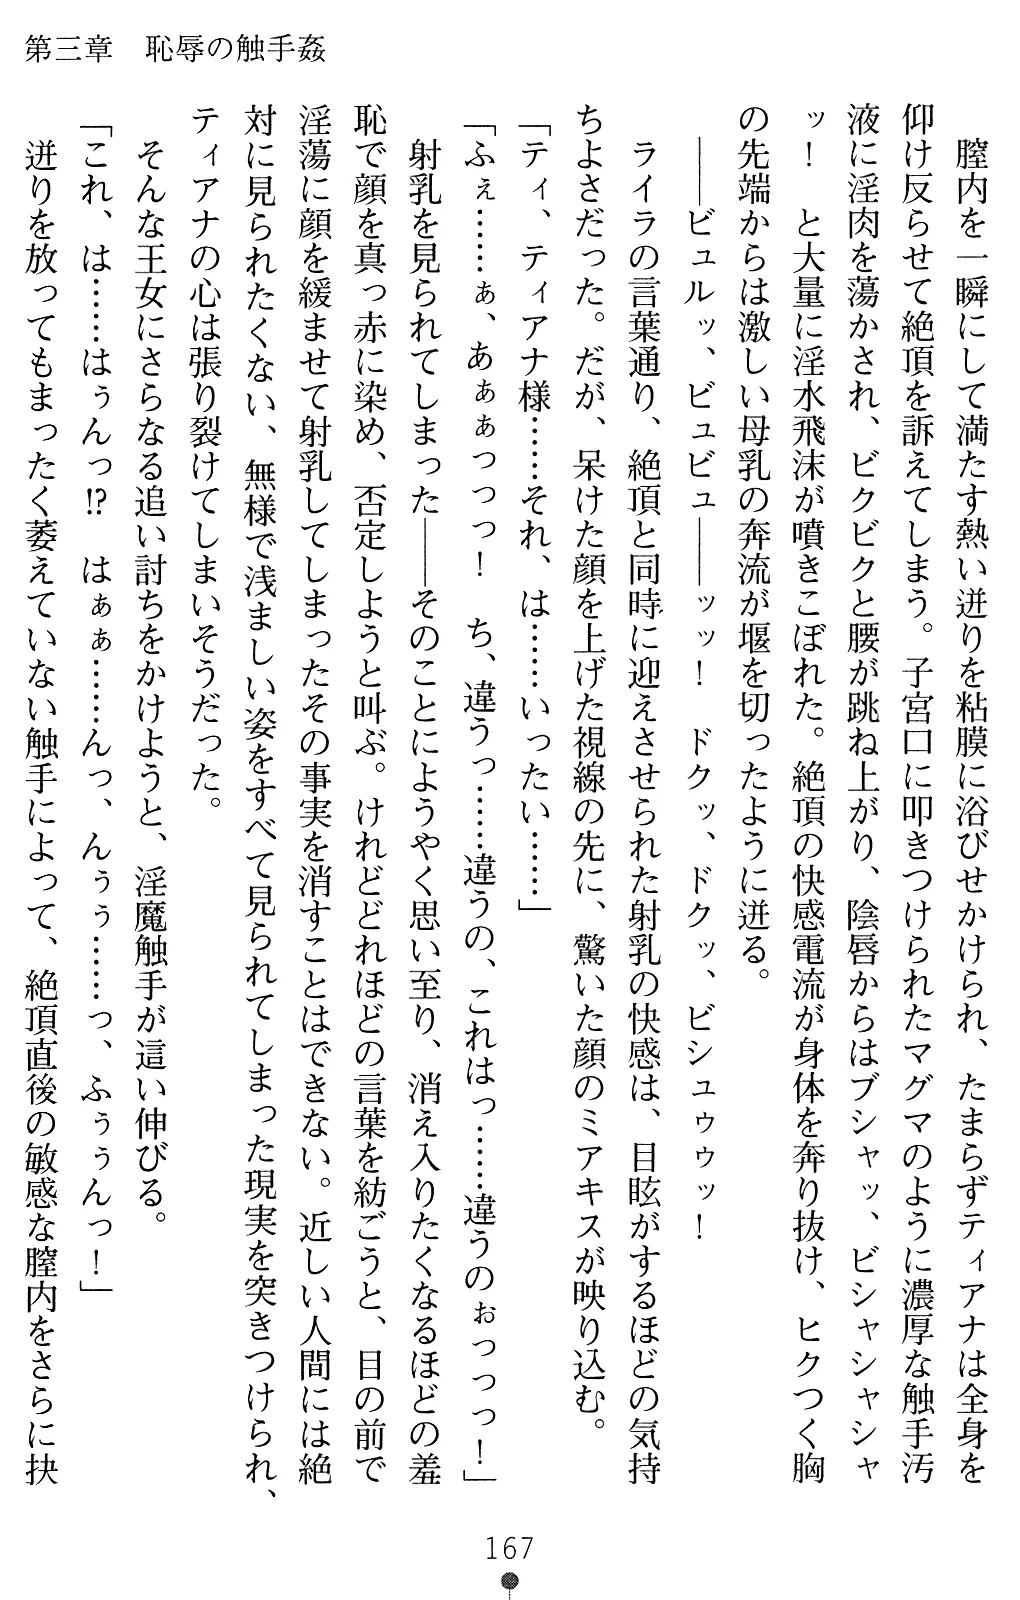 第三章　恥辱の触手姦
　膣内を一瞬にして満たす熱い迸りを粘膜に浴びせかけられ、たまらずティアナは全身を
仰け反らせて絶頂を訴えてしまう。子宮口に叩きつけられたマグマのように濃厚な触手汚
液に淫肉を蕩かされ、ビクビクと腰が跳ね上がり、陰唇からはブシャッ、ビシャシャシャ
ッ！　と大量に淫水飛沫が噴きこぼれた。絶頂の快感電流が身体を奔り抜け、ヒクつく胸
の先端からは激しい母乳の奔流が堰を切ったように迸る。
　――ビュルッ、ビュビュ――ッッ！　ドクッ、ドクッ、ビシュゥゥッ！
　ライラの言葉通り、絶頂と同時に迎えさせられた射乳の快感は、目眩がするほどの気持
ちよさだった。だが、呆けた顔を上げた視線の先に、驚いた顔のミアキスが映り込む。
「ティ、ティアナ様……それ、は……いったい……」
「ふぇ……ぁ、あぁぁっっっ！　ち、違うっ……違うの、これはっ……違うのぉっっっ！」
　射乳を見られてしまった――そのことにようやく思い至り、消え入りたくなるほどの羞
恥で顔を真っ赤に染め、否定しようと叫ぶ。けれどどれほどの言葉を紡ごうと、目の前で
淫蕩に顔を緩ませて射乳してしまったその事実を消すことはできない。近しい人間には絶
対に見られたくない、無様で浅ましい姿をすべて見られてしまった現実を突きつけられ、
ティアナの心は張り裂けてしまいそうだった。
　そんな王女にさらなる追い討ちをかけようと、淫魔触手が這い伸びる。
「これ、は……はぅんっ!?　はぁぁ……んっ、んぅぅ……っ、ふぅぅんっ！」
　迸りを放ってもまったく萎えていない触手によって、絶頂直後の敏感な膣内をさらに抉
167